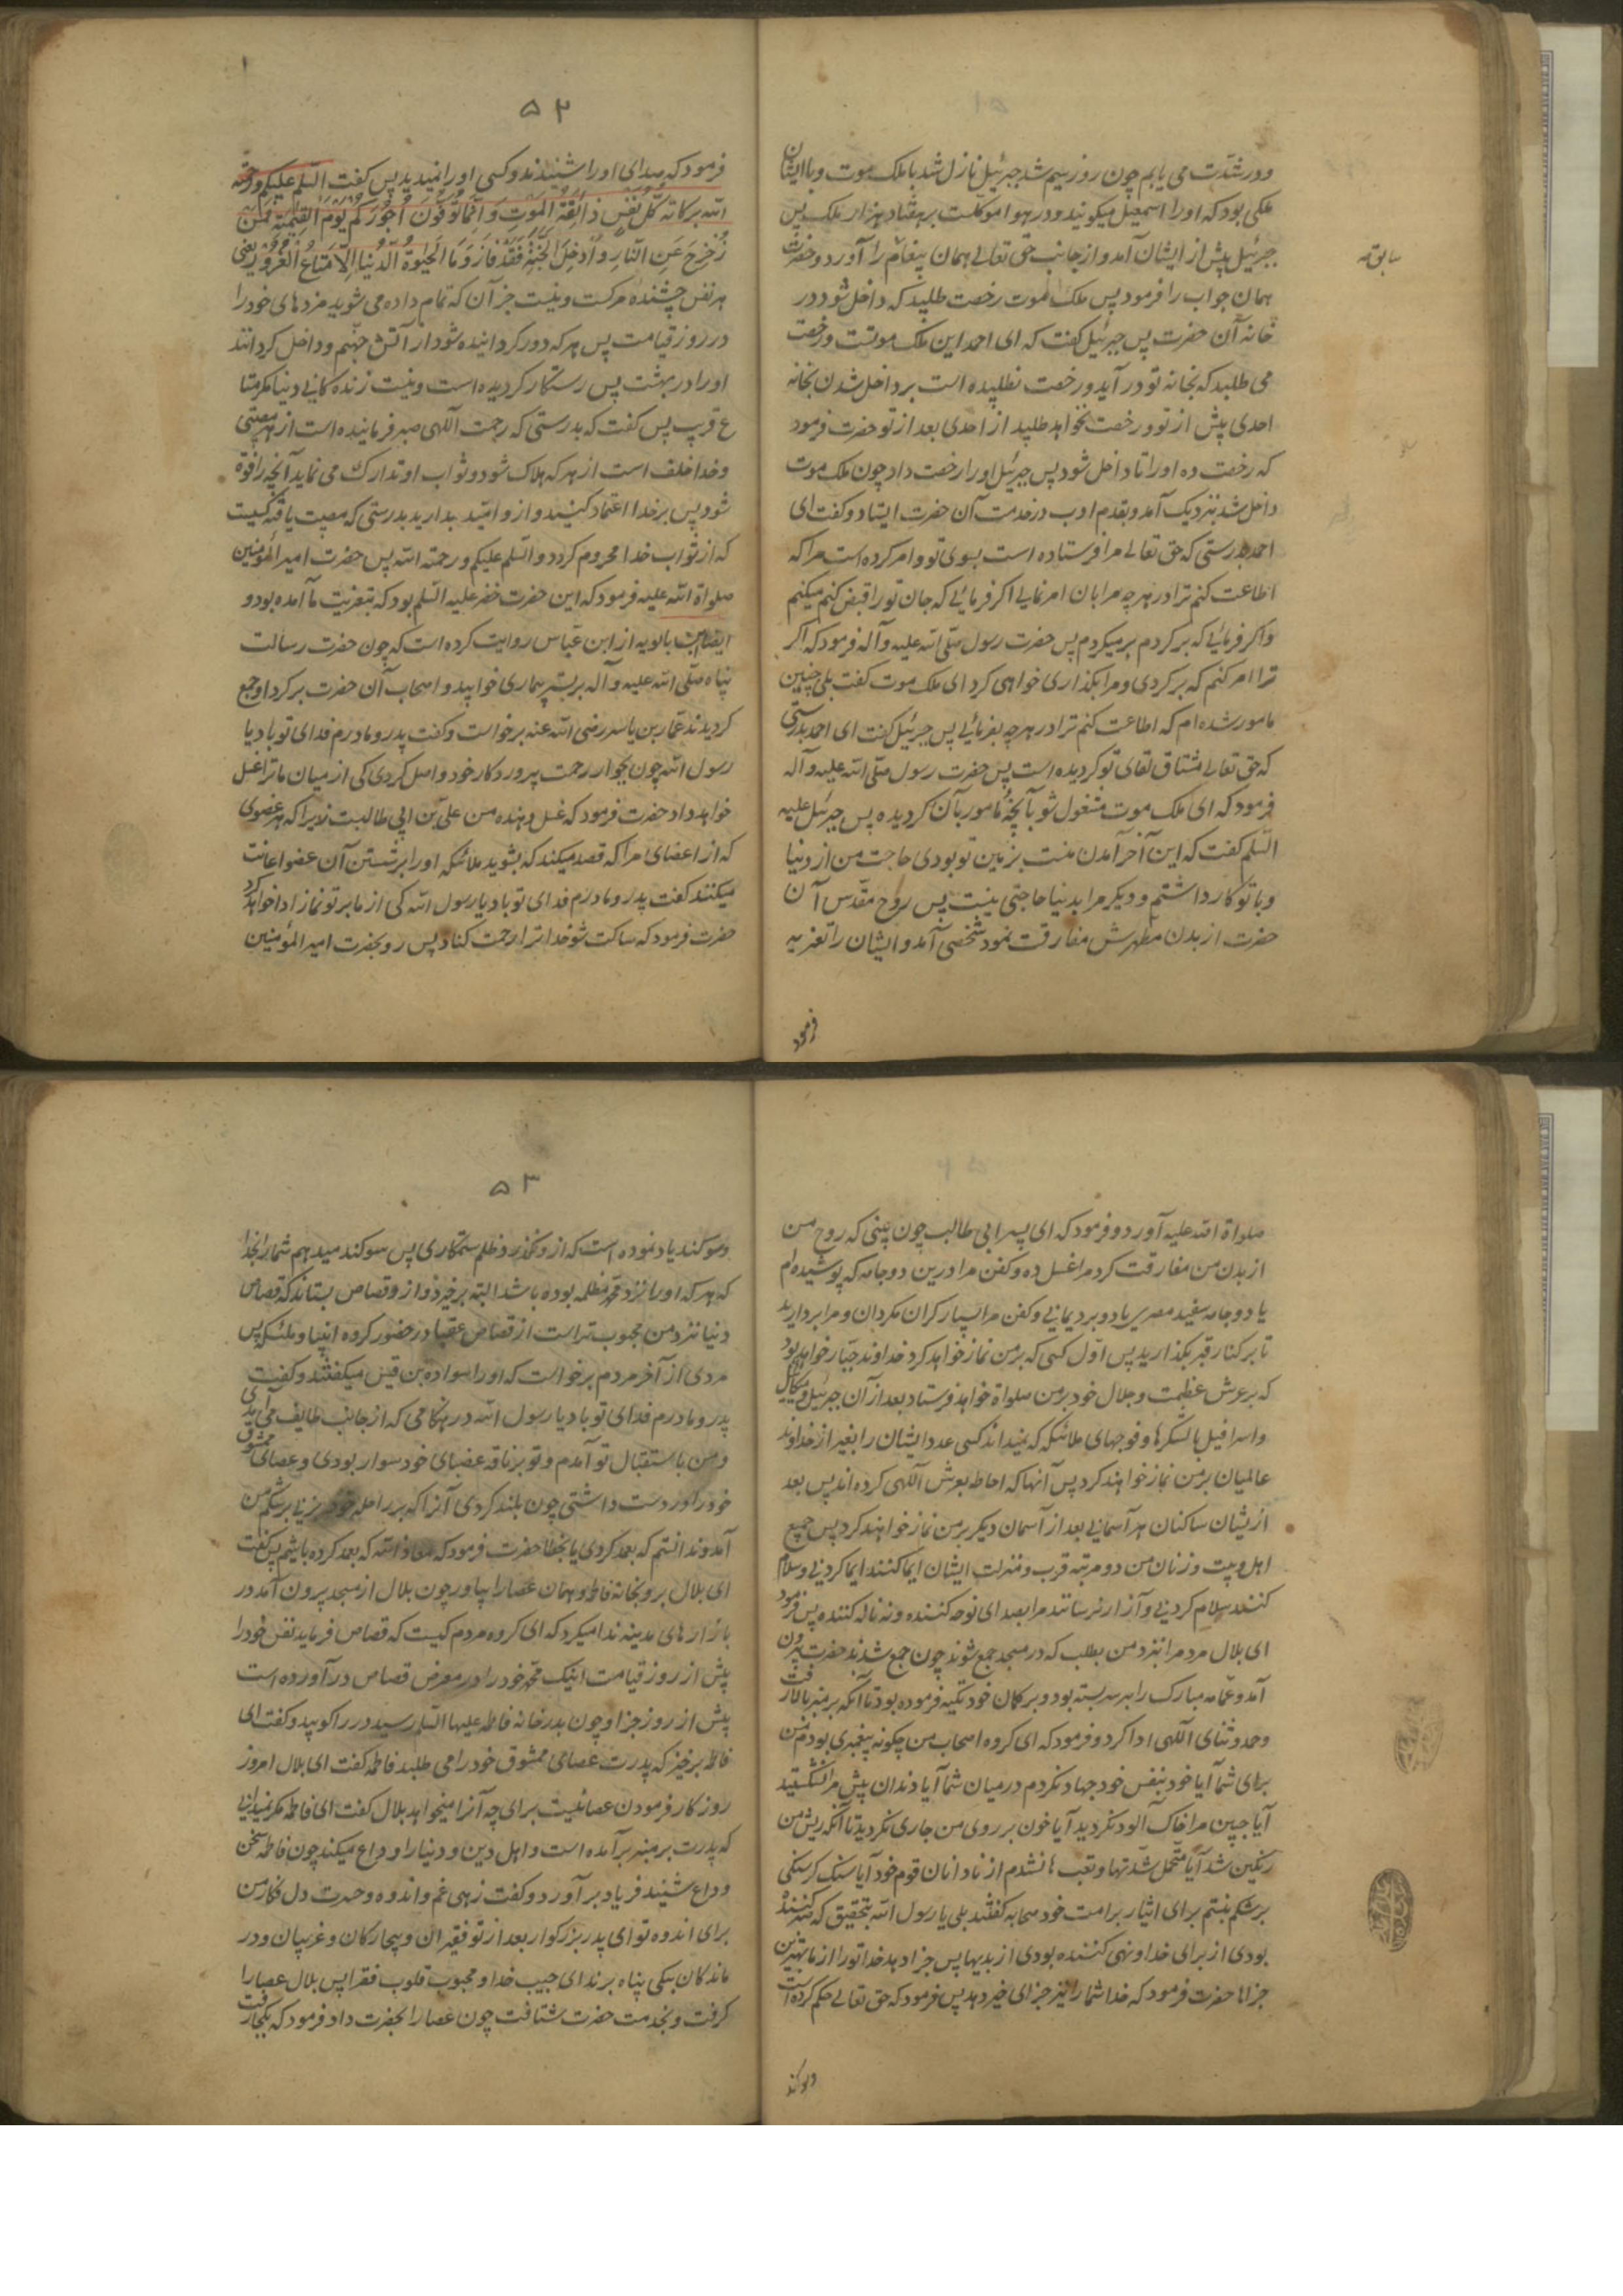 ودر شدّت می یابم چون روز سیم شد جبرئیل نازل شد با ملک موت و با ایشان
ملکی بود که اورا اسمعیل میکویند و در هوا موکلست بر هفتاد هزار ملک پس
جبرئیل پیش از ایشان آمد و از جانب حق تعالی همان پیغام را آورد و حضرت
سابق
همان جواب را فرمود پس ملک موت رخصت طلبید که داخل شود در
خانه آن حضرت پس جبرئیل کفت که ای احمد این ملک موتست و رخصت
می طلبد که بخانه تو در آید و رخصت نطلبیده است بر داخل شدن بخانه
احدی پیش از تو و رخصت نخواهد طلبید از احدی بعد از تو حضرت فرمود
که رخصت ده اورا تا داخل شود پس جبرئیل اورا رخصت داد چون ملک موت
داخل شد بنزدیک آمد و بقدم ادب در خدمت آن حضرت ایستاد و کفت ای
احمد بدرستی که حق تعالی مرا فرستاده است بسوی تو و امر کرده است مرا که
اطاعت کنم ترا در هر چه مرا بان امر نمایی اکر فرمائی که جان تورا قبض کنم میکنم
و اکر فرمائی که بر کردم بر میکردم پس حضرت رسول صلی الله علیه و آله فرمود که اکر
ترا امر کنم که بر کردی و مرا بکذاری خواهی کرد ای ملک موت کفت بلی چنین
مامور شده ام که اطاعت کنم ترا در هر چه بفرمائی پس جبرئیل کفت ای احمد بدرستی
که حق تعالی مشتاق لقای تو کردیده است پس حضرت رسول صلی الله علیه و آله
فرمود که ای ملک موت مشغول شو بآنچه مامور بآن کردیده پس جبرئیل علیه
السّلم کفت که این آخر آمدن منست بزمین تو بودی حاجت من از دنیا
و با تو کار داشتم و دیکر مرا بدنیا حاجتی نیست پس روح مقدّس آن
حضرت از بدن مطهرش مفارقت نمود شخصی آمد و ایشان را تعزیه
فرمود
۵۲
فرمود که صدای اورا شنیدند و کسی اورا نمیدید پس کفت السّلم علیکم و رحمة
الله برکاته کُلُّ نَفْسٍ ذائِقَةُ الْمَوْتِ وَ اِنَّما تُوَفَّوْنَ اُجُوْرَکُمْ یَوْمَ الْقِیٰمَةِ فَمَنْ
زُحْزِحَ عَنِ النّارِ وَ اُدْخِلَ الْجَنَّةَ فَقَدْ فازَ وَ مَا الْحَیٰوةُ الدُّنْیا اِلّا مَتاعُ الْغُرُوْرِ یعنی
هر نفس چشنده مرکست و نیست جز آن که تمام داده می شوید مزدهای خود را
در روز قیامت پس هر که دور کردانیده شود از آتش جهنّم و داخل کردانند
اورا در بهشت پس رستکار کردیده است و نیست زنده کانی دنیا مکر متا
ع فریب پس کفت که بدرستی که رحمت آللهی صبر فرماینده است از هر مصیبتی
و خدا خلف است از هر که هلاک شود و ثواب او تدارک می نماید آنچه را فوت
شود پس بر خدا اعتماد کنید و از و امّید بدارید بدرستی که مصیبت یافته کسیست
که از ثواب خدا محروم کردد والسّلم علیکم و رحمته الله پس حضرت امیر المؤمنین
صلواة الله علیه فرمود که این حضرت خضر علیه السّلم بود که بتعزیت ما آمده بود و
ایضا ابن بابویه از ابن عبّاس روایت کرده است که چون حضرت رسالت
پناه صلّی الله علیه و آله بر بستر بیماری خوابید و اصحاب آن حضرت بر کرد او جمع
کردیدند عمّار بن یاسر رضی الله عنه برخواست و کفت پدر و مادرم فدای تو باد یا
رسول الله چون بجوار رحمت پروردکار خود واصل کردی کی از میان ما ترا غسل
خواهد داد حضرت فرمود که غسل دهنده من علی بن ابی طالبست زیرا که هر عضوی
که از اعضای مرا که قصد میکند که بشوید ملائکه اورا بر شستن آن عضو اعانت
میکنند کفت پدر و مادرم فدای تو باد یا رسول الله کی از ما بر تو نماز ادا خواهد کرد
حضرت فرمود که ساکت شو خدا ترا رحمت کناد پس رو بحضرت امیر المؤمنین
صلواة الله علیه آورد و فرمود که ای پسر ابی طالب چون بینی که روح من
از بدن من مفارقت کرد مرا غسل ده و کفن مرا در این دو جامه که پوشیده ام
یا دو جامه سفید مصری یا دو برد یمانی و کفن مرا بسیار کران مکردان و مرا بردارید
تا بر کنار قبر بکذارید پس اوّل کسی که بر من نماز خواهد کرد خداوند جبّار خواهد بود
که بر عرش عظمت و جلال خود بر من صلواة خواهد فرستاد بعد از آن جبرئیل و میکائیل
و اسرافیل با لشکرها و فوجهای ملائکه که نمیداند کسی عدد ایشان را بغیر از خداوند
عالمیان بر من نماز خواهند کرد پس آنها که احاطه بعرش آللهی کرده اند پس بعد
از یشان ساکنان هر آسمانی بعد از آسمان دیکر بر من نماز خواهند کرد پس جمیع
اهل و بیت و زنان من در مرتبه قرب و منزلت ایشان ایما کنند ایما کردنی و سلام
کنند سلام کردنی و آزار نرسانند مرا بصدای نوحه کننده و نه ناله کننده پس فرمود
ای بلال مردم را بنزد من بطلب که در مسجد جمع شوند چون جمع شدند حضرت بیرون
آمد و عمّامه مبارک را بر سر بسته بود و بر کمان خود تکیه فرموده بود تا آنکه بر منبر بالا رفت
و حمد و ثنای اللهی ادا کرد و فرمود که ای کروه اصحاب من چکونه پیغمبری بودم من
برای شما آیا خود بنفس خود جهاد نکردم در میان شما آیا دندان پیش مرا نشکستید
آیا جبین مرا خاک آلود نکردید آیا خون بر روی من جاری نکردید تا آنکه ریش من
رنکین شد آیا متحمّل شدّتها و تعبها نشدم از نادانان قوم خود آیا سنک کرسنکی
بر شکم نبستم برای ایثار بر امت خود صحابه کفتند بلی یا رسول الله بتحقیق که صبر کننده
بودی از برای خدا و نهی کننده بودی از بدیها پس جزا دهد خدا تورا از ما بهترین
جزاها حضرت فرمود که خدا شمارا نیز جزای خیر دهد پس فرمود که حق تعالی حکم کرده است
وسوکند
۵۳
وسوکند یاد نموده است که از و نکذرد ظلم ستمکاری پس سوکند میدهم شمارا بخدا
که هر که اورا نزد محمد مظلمه بوده باشد البته برخیزد و از و قصاص بستاند که قصاص
دنیا نزد من محبوب تر است از قصاص عقبا در حضور کروه انبیا و ملئکه پس
مردی از آخر مردم برخواست که اورا سواده بن قیس میکفتند و کفت
پدر و مادرم فدای تو باد یا رسول الله در هنکامی که از جانب طایف می آمدی
و من باستقبال تو آمدم و تو بر ناقه عضبای خود سوار بودی و عصای ممشوق
خود را در دست داشتی چون بلند کردی آنرا که بر راحله خود بزنی بر شکم من
آمد و ندانستم که بعمد کردی یا بخطا حضرت فرمود که معاذ الله که بعمد کرده باشم پس کفت
ای بلال برو بخانه فاطمه و همان عصارا بیاور چون بلال از مسجد بیرون آمد در
بازارهای مدینه ندا میکرد که ای کروه مردم کیست که قصاص فرماید نفس خود را
پیش از روز قیامت اینک محمّد خود را در معرض قصاص در آورده است
پیش از روز جزا و چون بدر خانه فاطمه علیها السّلم رسید در را کوبید و کفت ای
فاطمه برخیز که پدرت عصای ممشوق خود را می طلبد فاطمه کفت ای بلال امروز
روز کار فرمودن عصا نیست برای چه آنرا میخواهد بلال کفت ای فاطمه مکر نمیدانی
که پدرت بر منبر بر آمده است و اهل دین و دنیا را وداع میکند چون فاطمه سخن
وداع شنید فریاد بر آورد و کفت زهی غم و اندوه و حسرت دل فکار من
برای اندوه تو ای پدر بزرکوار بعد از تو فقیران و بیچارکان و غریبان و در
ماندکان بکی پناه برند ای حبیب خدا و محبوب قلوب فقرا پس بلال عصا را
کرفت و بخدمت حضرت شتافت چون عصا را بحضرت داد فرمود که بکجا رفت